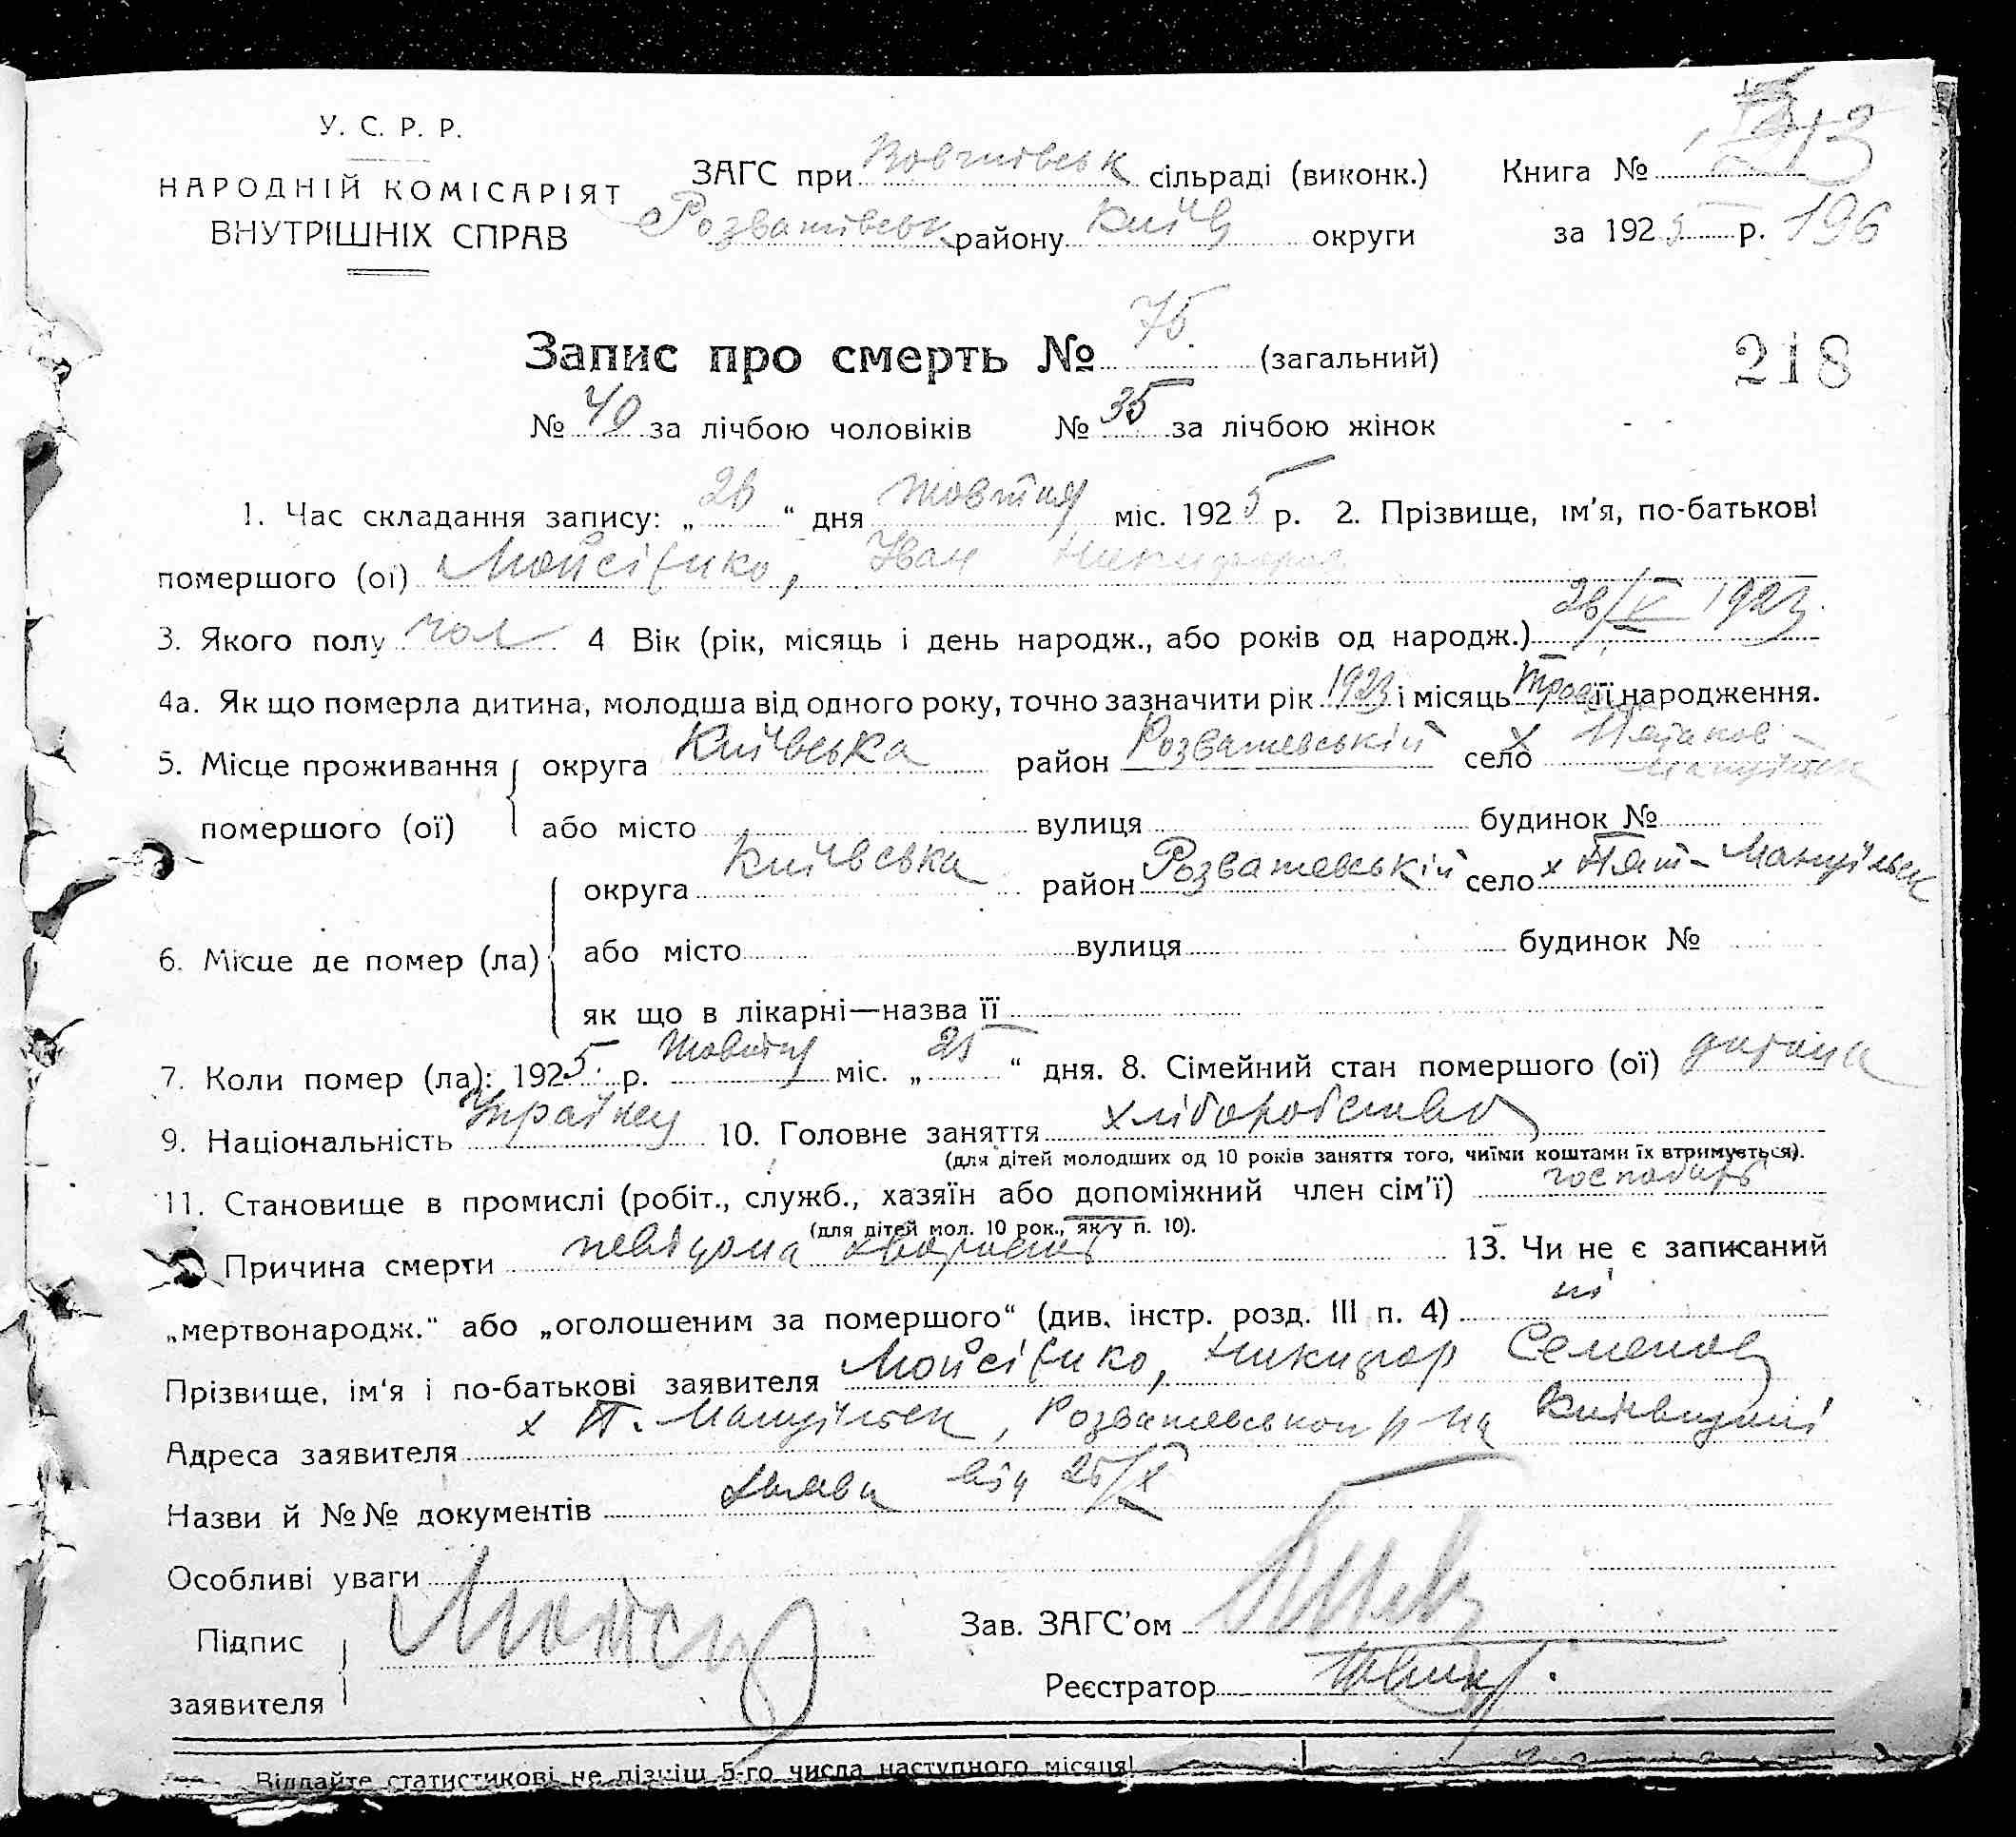 У. С. Р. Р.
НАРОДНІЙ КОМІСАРІЯТ
ВНУТРІШНІХ СПРАВ
ЗАГС при сільраді (виконк.)
Розважівськ району Київ округи
Книга №
за 1925 р. 196
Запис про смерть № 75 (загальний)
218
№ 40 за лічбою чоловіків № 35 за лічбою жінок
1. Час складання запису: „ 26 “ дня жовтня міс. 1925 р. 2. Прізвище, ім'я, по-батькові
помершого (ої) Мойсієнко, Іван Никифоров
3. Якого полу чол 4 Вік (рік, місяць і день народж., або років од народж.) 1923
4а. Як що померла дитина, молодша від одного року, точно зазначити рік 1923 і місяць її народження.
5. Місце проживання помершого (ої) округа Київська район Розважевській село х
або місто вулиця будинок №
6. Місце де помер (ла) округа Київська район Розважевській село х Пят-Мануїльск
або місто вулиця будинок №
як що в лікарні—назва її
7. Коли помер (ла): 1925 р. жовтня міс. „ 25 “ дня. 8. Сімейний стан помершого (ої) дитина
9. Національність Українец 10. Головне заняття хліборобство
(для дітей молодших од 10 років заняття того, чиїми коштами їх втримується).
11. Становище в промислі (робіт., служб., хазяїн або допоміжний член сім'ї) господарь
(для дітей мол. 10 рок., як у п. 10).
Причина смерти невідома хворость 13. Чи не є записаний
„мертвонародж.“ або „оголошеним за помершого“ (див. інстр. розд. III п. 4) ні
Прізвище, ім'я і по-батькові заявителя Мойсієнко, Никифор Семенов
Адреса заявителя х П. Мануїльск, Розважевського р-на Київщині
Назви й №№ документів заява від 26/X
Особливі уваги
Підпис
заявителя
Зав. ЗАГС'ом
Реєстратор
Віддайте статистикові не пізніш 5-го числа наступного місяця!